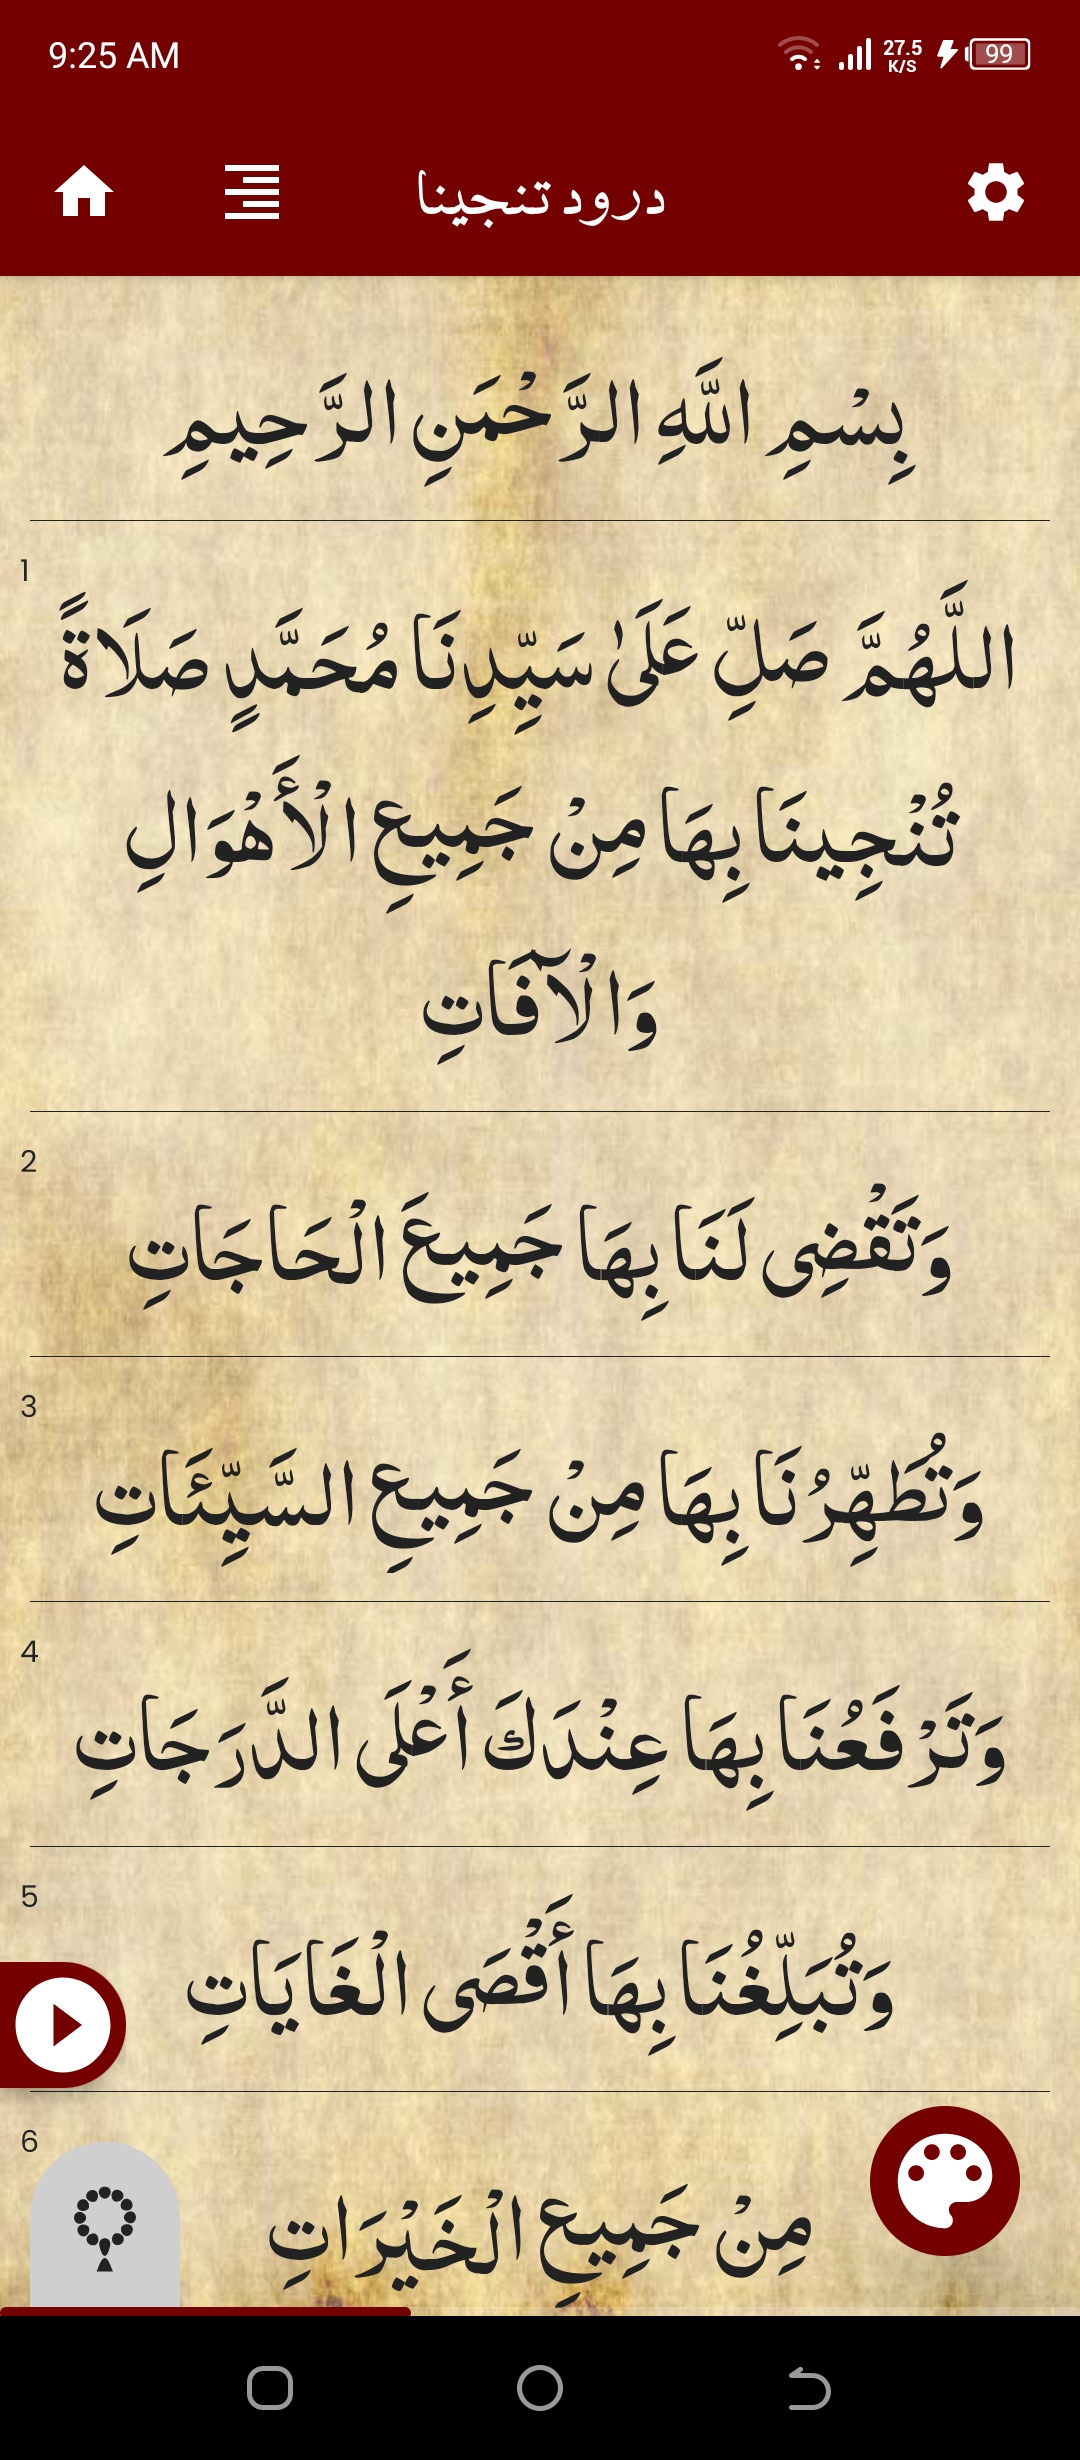 9:25 AM
27.5
K/S
99
درود تنجینا
بِسْمِ اللَّهِ الرَّحْمَنِ الرَّحِيمِ
1
اللَّهُمَّ صَلِّ عَلَىٰ سَيِّدِنَا مُحَمَّدٍ صَلَاةً
تُنْجِينَا بِهَا مِنْ جَمِيعِ الْأَهْوَالِ
وَالْآفَاتِ
2
وَتَقْضِى لَنَا بِهَا جَمِيعَ الْحَاجَاتِ
3
وَتُطَهِّرُنَا بِهَا مِنْ جَمِيعِ السَّيِّئَاتِ
4
وَتَرْفَعُنَا بِهَا عِنْدَكَ أَعْلَى الدَّرَجَاتِ
5
وَتُبَلِّغُنَا بِهَا أَقْصَى الْغَايَاتِ
6
مِنْ جَمِيعِ الْخَيْرَاتِ